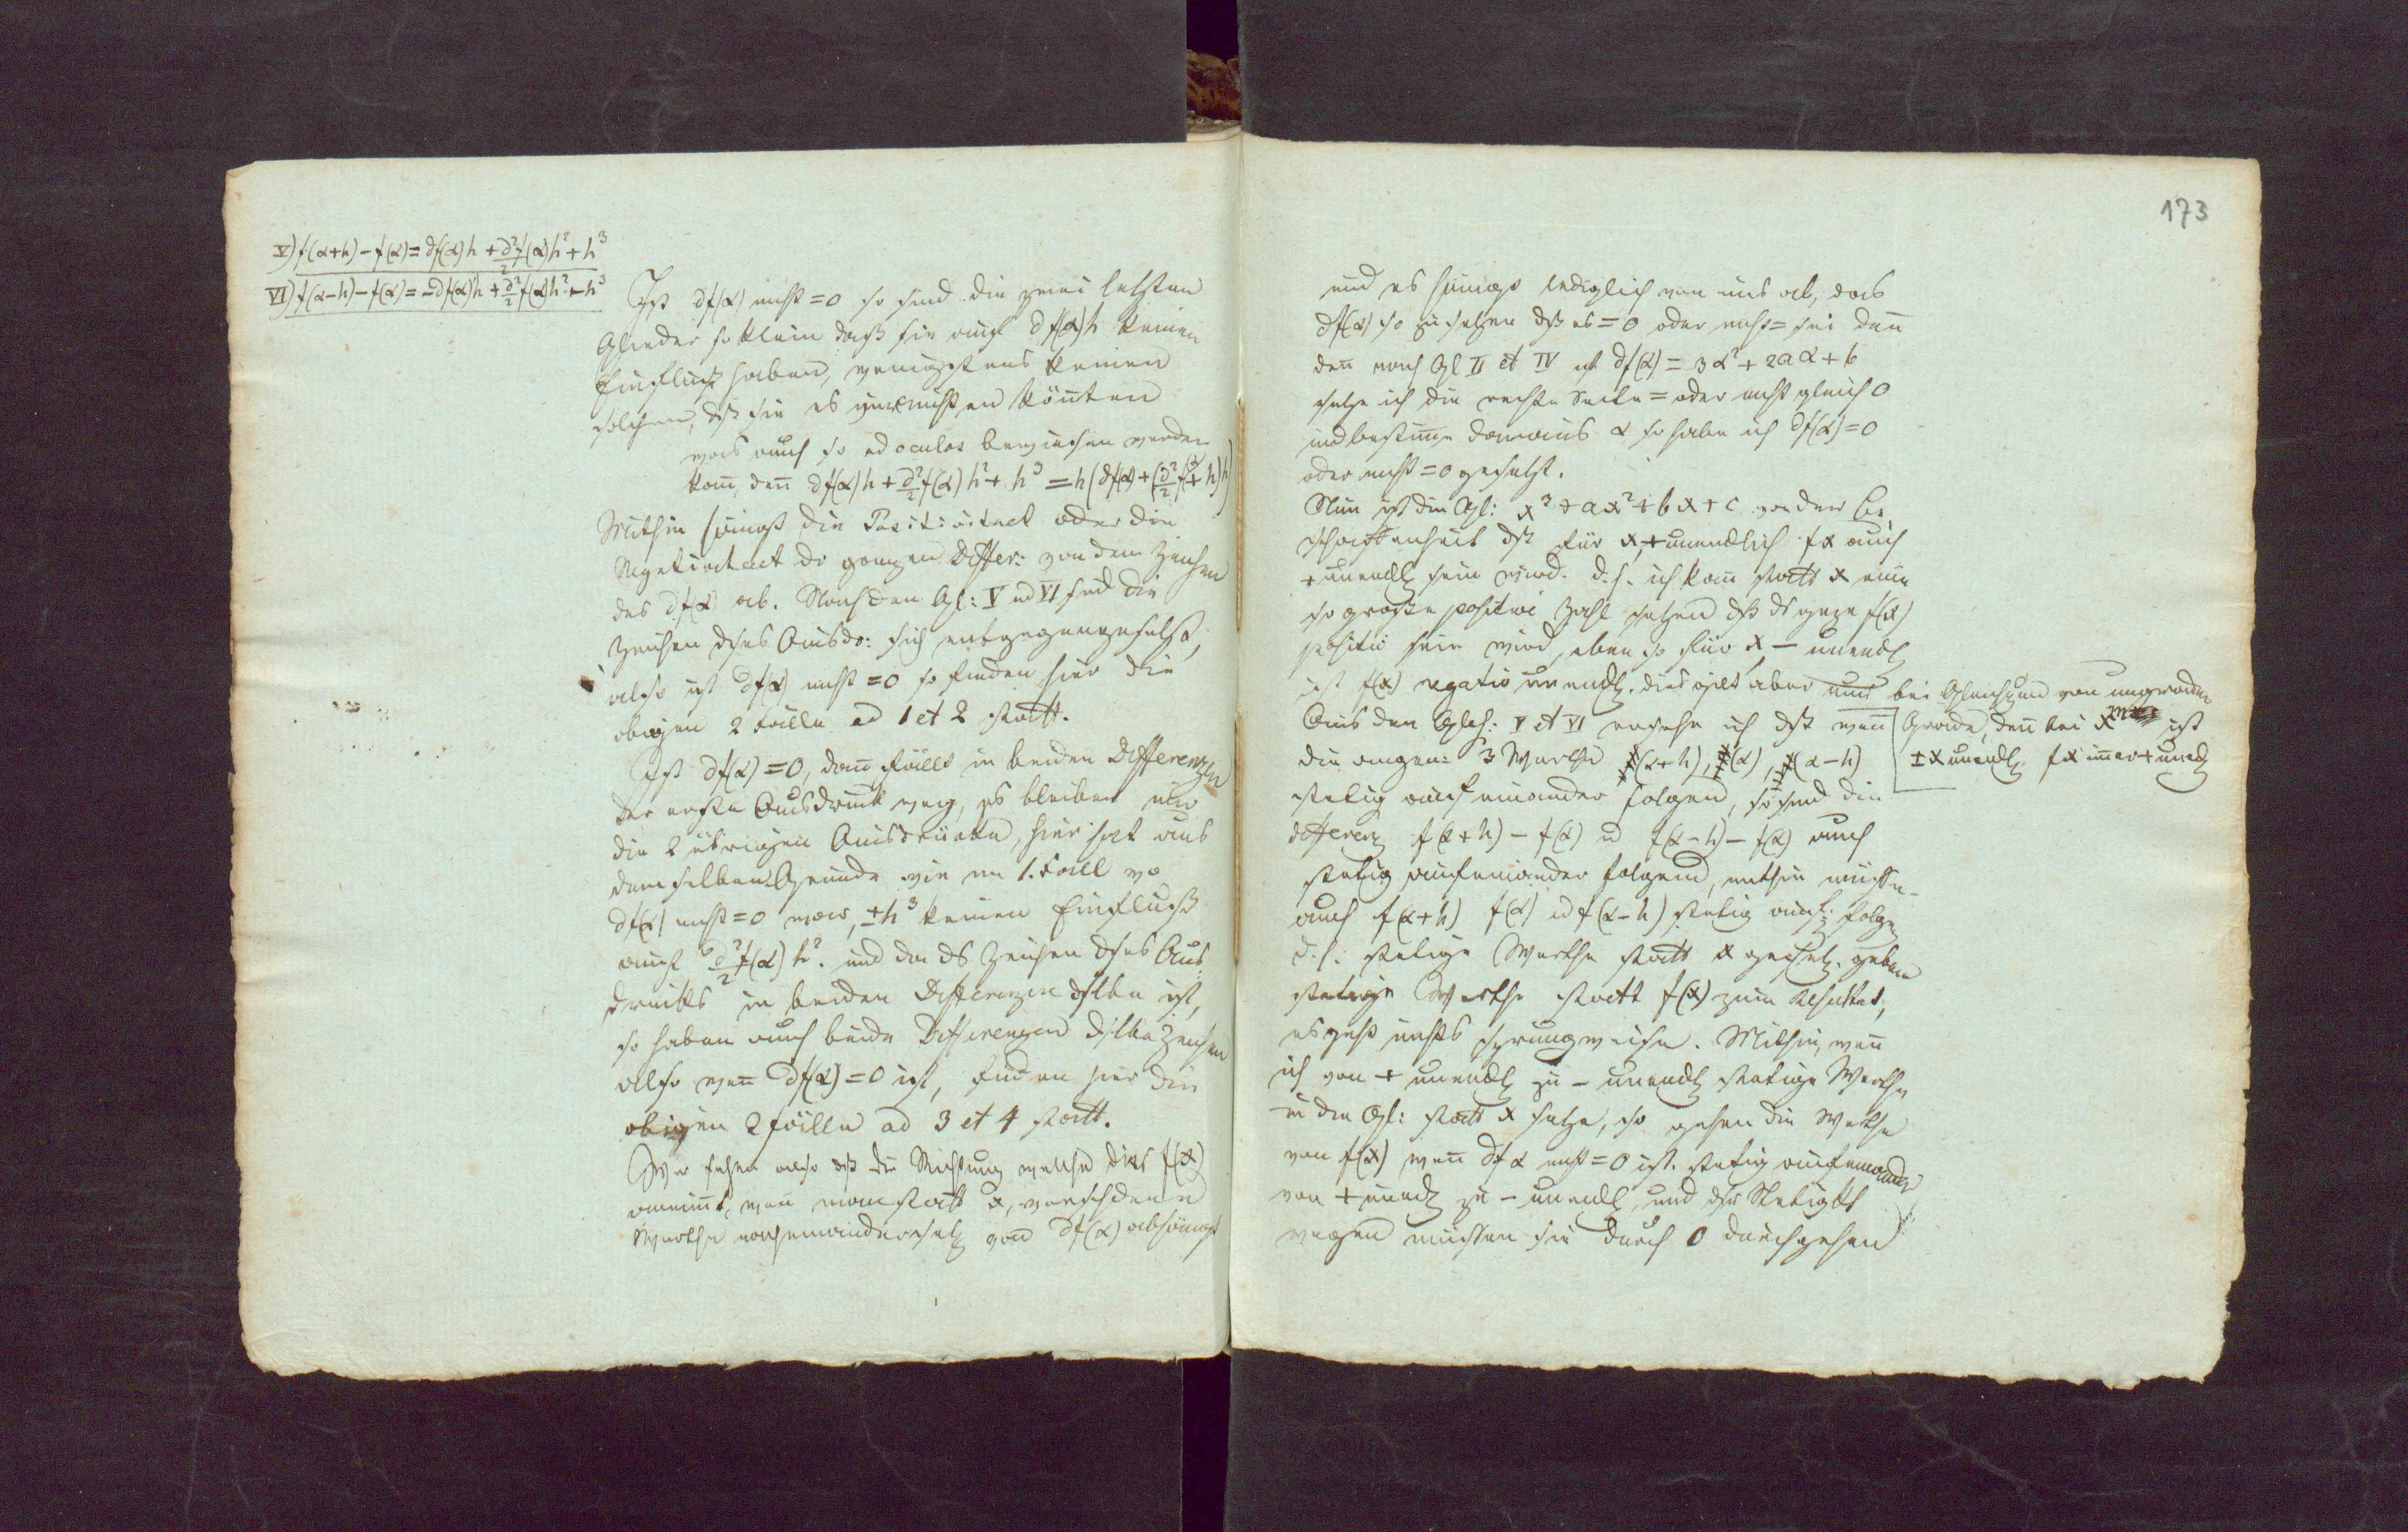 V) f(α+h) – f(α) = df(α)h + d²/2 f(α)h² + h³
VI) f(α–h) – f(α) = –df(α)h + d²/2 f(α)h² – h³
Ist df(α) nicht = 0 so sind die zwei letzten
Glieder so klein daß sie auf df(α)h keinen
Einfluß haben, wenigstens keinen
solchen, dß sie es vernichten könnten
was auch so ad oculos bewiesen werden
kan̄, den̄ df(α)h + d²/2 f(α)h² + h³ = h(df(α) + (d²/2 f(α) + h)h)
Mithin hängt die Positivitaet oder die
Negativitaet dr ganzen Differ: von dem Zeichen
des df(α) ab. Nach den Gl: V ud VI sind die
Zeichen dses Ausdr: sich entgegengesetzt,
also ist df(α) nicht = 0 so finden hier die
obigen 2 Fälle ad 1 et 2 statt.
Ist df(α) = 0, dan̄ fällt in beiden Differenzen
der erste Ausdruck weg, es bleiben nur
die 2 übrigen Ausdrücke, hier hat aus
demselben Grunde wie im 1. Fall wo
df(α) nicht = 0 war, ±h³ keinen Einfluß
auf d²/2 f(α)h². und da ds Zeichen dses Aus
drucks in beiden Differenzen dslbe ist,
so haben auch beide Differenzen dslbe Zeichen
also wen̄ df(α) = 0 ist, finden hier die
obigen 2 Fälle ad 3 et 4 statt.
Wir sehen also dß die Richtung welche dies f(x)
annim̄t, wen̄ man statt x, verschdene
Werthe nacheinander setz von df(α) abhängt
173
und es hängt lediglich von uns ab, das
df(α) so zu setzen dß es = 0 oder nicht = sei den̄
den̄ nach Gl II et IV ist df(α) = 3α² + 2aα + b
setze ich die rechte Seite = oder nicht gleich 0
und bestim̄e daraus α so habe ich df(α) = 0
oder nicht = 0 gesetzt.
Nun ist die Gl: x³ + ax² + bx + c von der Be
schaffenheit dß für x, + unendlich fx auch
+ unendl sein wird. d. h. ich kan̄ statt x eine
so große positive Zahl setzen dß ds ganze f(x)
positiv sein wird, eben so für x – unendl
ist f(x) negativ unendl. dies gilt aber nur bei Gleichungen von ungraden
Grade, den̄ bei x ist
± x unendl fx im̄er + unedl
Aus den Glch: V et VI ersehe ich dß wen̄
die angen: 3 Werthe (α+h), (α), (α–h)
stetig aufeinander folgen, so sind die
differenz f(α+h) – f(α) ud f(α–h) – f(α) auch
stetig aufeinander folgend, mithin müssen
auch f(α+h) f(α) ud f(α–h) stetig auf: folgen
d. h. stetige Werthe statt x gesetz. geben
stetige Werthe statt f(x) zum Resultat,
es geht nichts sprungweise. Mithin, wen̄
ich von + unendl zu – unendl stetige Werthe
in die Gl: statt x setze, so gehen die Werthe
von f(x) wen̄ df α nicht = 0 ist. stetig aufeinander
von + unedl zu – unendl, und der Stetigkt
wegen müssen sie durch 0 durchgehen